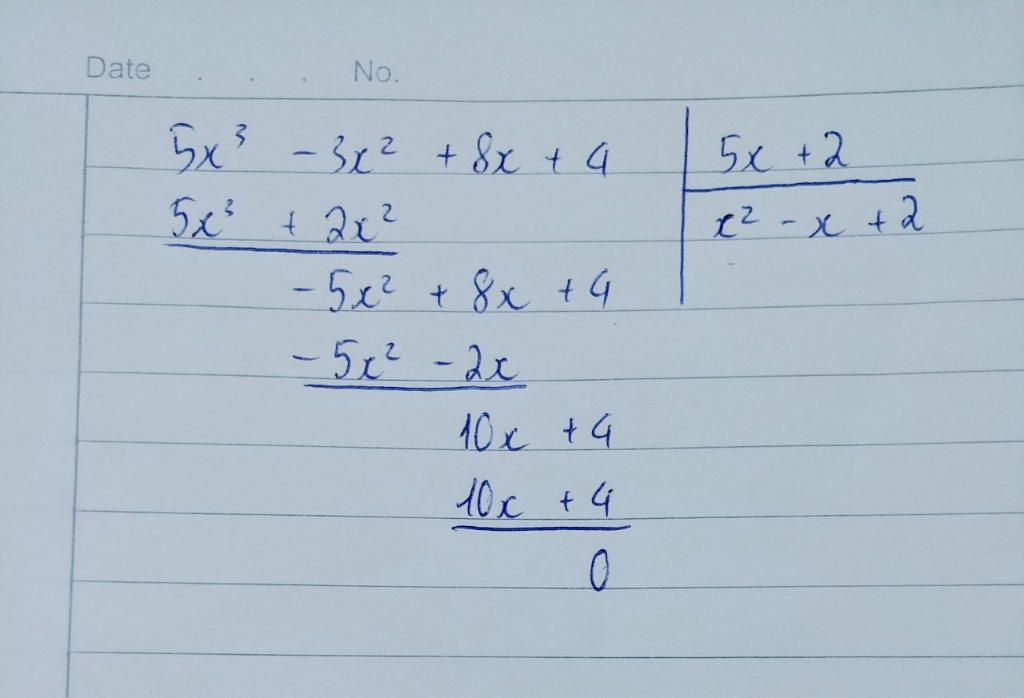 Date . . . No.
5x³ - 3x² + 8x + 4 | 5x + 2
5x³ + 2x² | x² - x + 2
-5x² + 8x + 4
-5x² - 2x
10x + 4
10x + 4
0